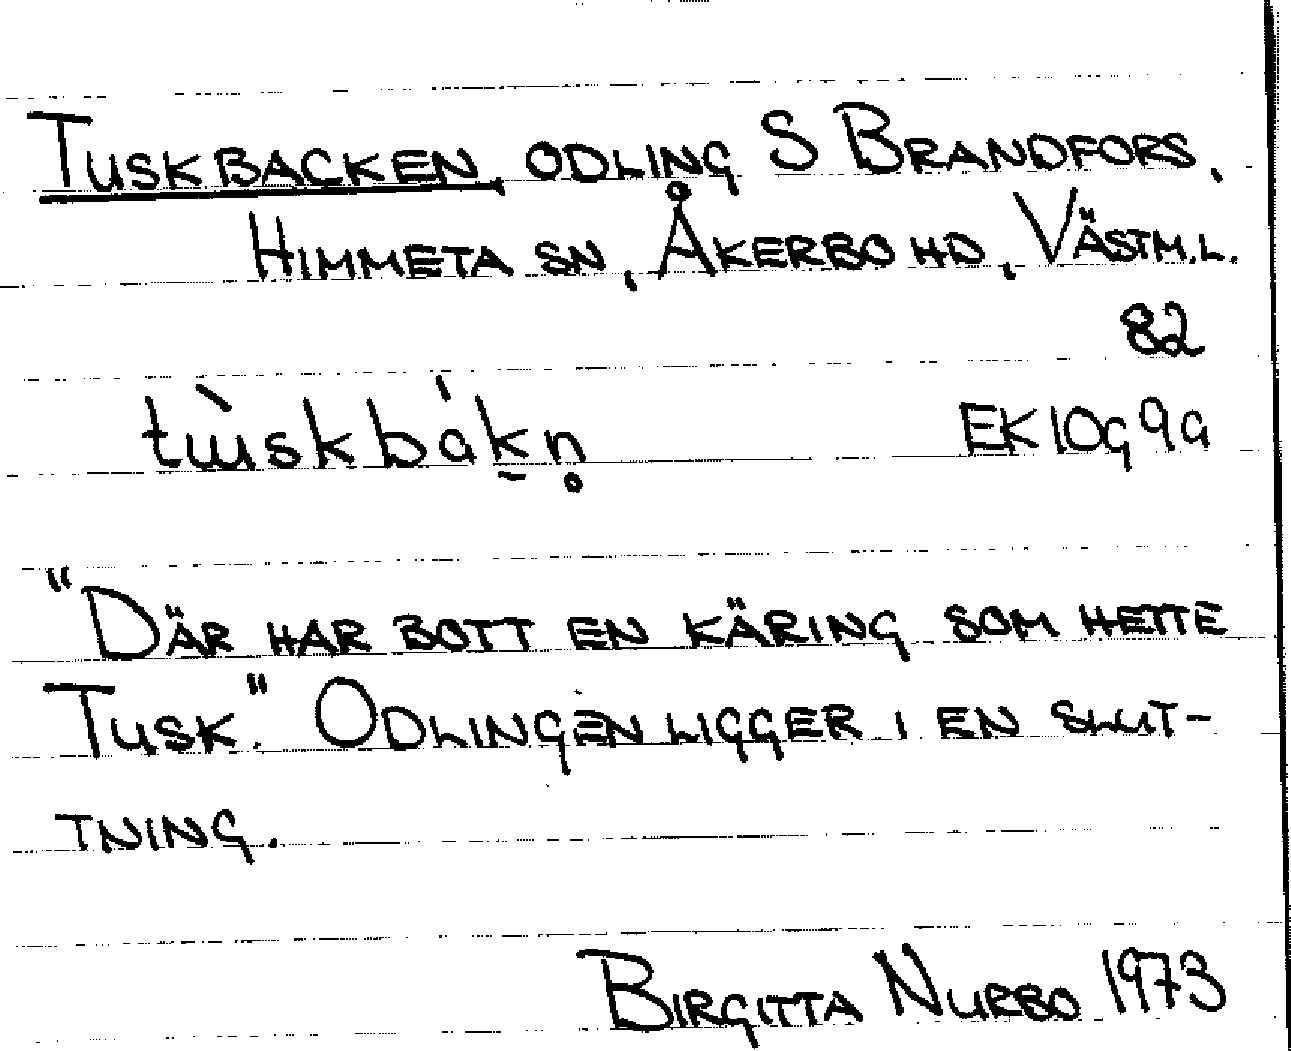 Tuskbacken, odling S Brandfors,
Himmeta sn, Åkerbo hd, Västm.l.
82
tɯ̀skbákn̥
EK 10g 9a
"Där har bott en käring som hette
Tusk." Odlingen ligger i en slut-
tning.
Birgitta Nurbo 1973